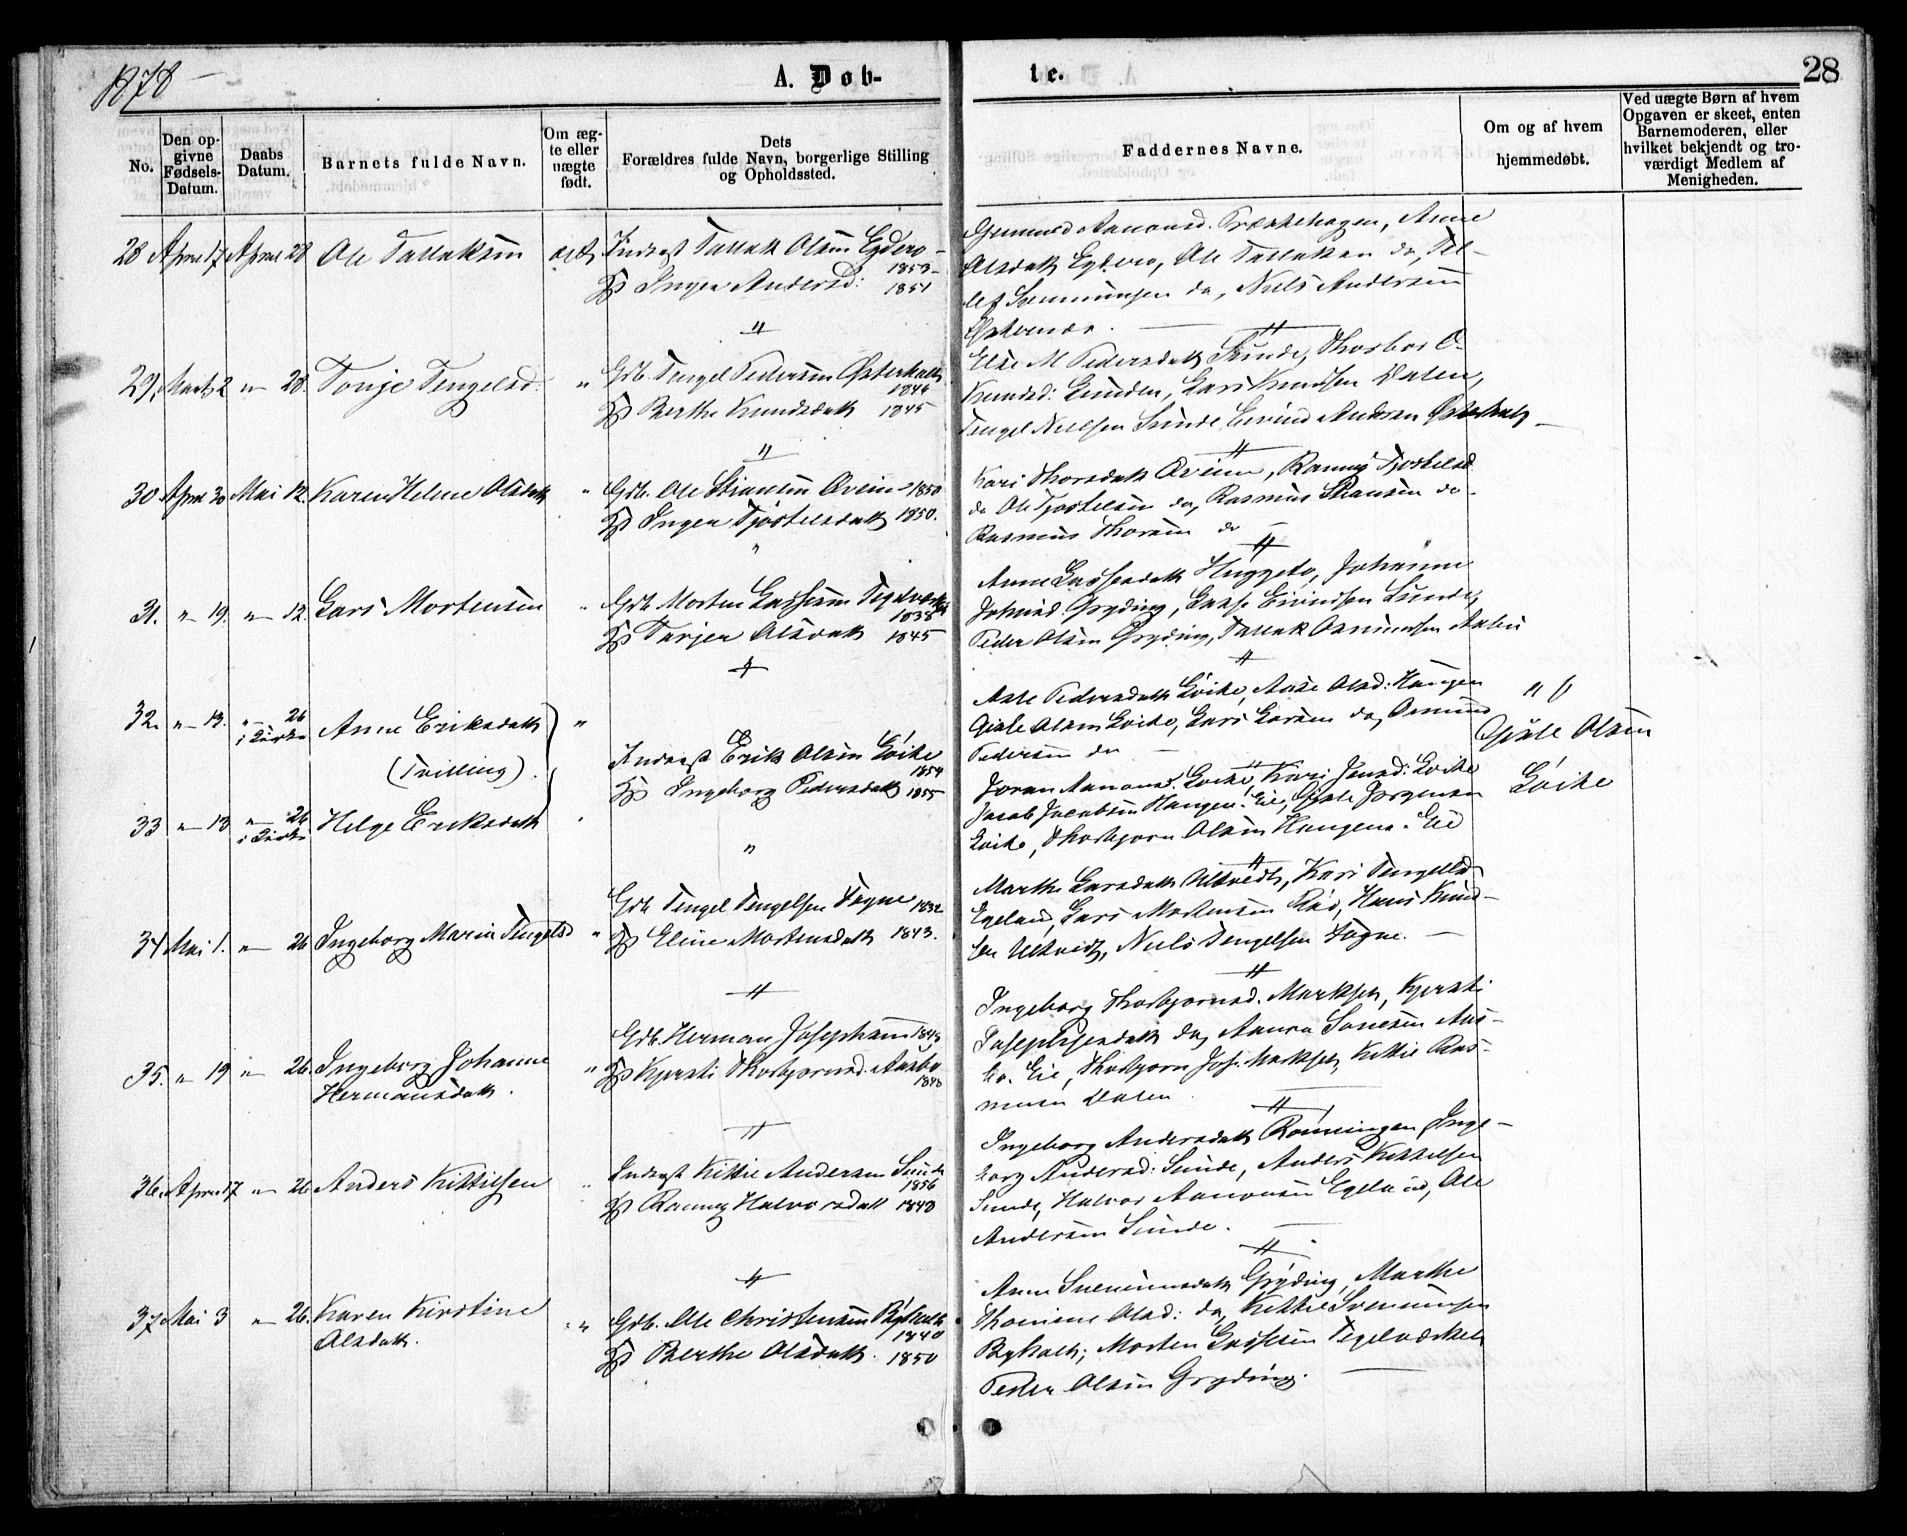 1878
A. Døb-
te.
28
No.
Den op-
givne
Fødsels-
Datum.
Daabs
Datum.
Barnets fulde Navn.
Om æg-
te eller
uægte
født.
Dets
Forældres fulde Navn, borgerlige Stilling
og Opholdssted.
Faddernes Navne.
Om og af hvem
hjemmedøbt.
Ved uægte Børn af hvem
Opgaven er skeet, enten
Barnemoderen, eller
hvilket bekjendt og tro-
værdigt Medlem af
Menigheden.
28 April 17 April 28 Ole Tallaksen ægte Inderst Tallak Olsen Eydero
1853
Inger Andersd: 1851
Gunmund Aanonsd. Trækkehagen, Anne
Olsdatt Eydero, Ole Tallaksen do,
Sammunsen do, Niels Andersen
29. Marts 2 " 28. Tonje Tengelsd. " Gdb. Tengel Pedersen Østerholt
1846
Berthe Knudsdatt 1845
Else M Pedersdatt Sunde, Thorbor O.
Knudsd: Lunden, Lars Knudsen Dalen,
Tengel Nielsen Sunde Eivind Andersen Østerholt
30 April 30 Mai 12. Karen Helene Olsdatt " Gdb. Ole Stiansen Øveim 1850
Inger Tjøstelsdatt 1850.
Kari Thorsdatt Øveim, Rannug Tjøstelsd
do Ole Tjøstelsen do, Rasmus Stiansen do
Rasmus Thorsen do
31. " 19. " 12. Lars Mortensen " Gdb Morten Lassesen Teglværket
1838
Tarjer Olsdatt 1845
Anne Lassesdatt Huggeto, Johanne
Johnsd. Gryding, Lasse Eivindsen Lunde,
Peder Olsen Gryding, Tallak Osmundsen Aabu
32. " 13. " 26 i Kirke Anne Eriksdatt "
(Tvilling).
Inderst Erik Olsen Loike
1854
Ingeborg Pedersdatt 1855
Aste Pedersdatt Loike, Aase Olsd: Haugen
Gjale Olsen Loike, Lars Larsen do, Osmund
Pedersen do
Gjale Olsen
Loike
33 " 13 " 26 i Kirke Helge Eriksdatt "
Joran Aanonsd. Loike, Kari Jensd: Loike
Jacob Jacobsen Haugen. Eie, Gjale Jørgensen
Loike, Thorbjørn Olsen Haugens. Eie
34 Mai 1. " 26 Ingeborg Maria Tengelsd " Gdb Tengel Tengelsen Fogne 1832
Eline Mortensdatt 1843.
Marthe Larsdatt Ultvedt, Kari Tengelsd
Egeland, Lars Mortensen Rød, Hans Knud-
sen Ultvedt, Niels Tengelsen Fogne.
35. " 19 " 26. Ingeborg Johanne
Hermansdatt.
" Gdb. Herman Josephsen 1843
Kjersti Thorbjørnsd. Aasbo
1848
Ingeborg Thorbjørnsd. Marksjet, Kjersti
Josephsendatt do, Aanon Sonesen Aas-
bo. Eie, Thorbjørn Jos. Marksjet, Kittil Ras-
musen Dalen
36. April 17 " 26. Anders Kittilsen " Inderst Kittil Andersen Sunde
1856
Rannug Halvorsdatt 1848
Ingeborg Andersdatt Rønningen Inge-
borg Andersd: Sunde, Anders Kittelsen
Sunde, Halvor Aanonsen Egeland, Ole
Andersen Sunde.
37 Mai 3 " 26. Karen Kirstine
Olsdatt.
" Gdb. Ole Christensen Byholt
1840
Berthe Olsdatt. 1850
Anne Svenumsdatt Gryding, Marthe
Thomine Olsd: do, Kittil Svenumsen
Byholt; Morten Lassesen Teglværket
Peder Olsen Gryding.